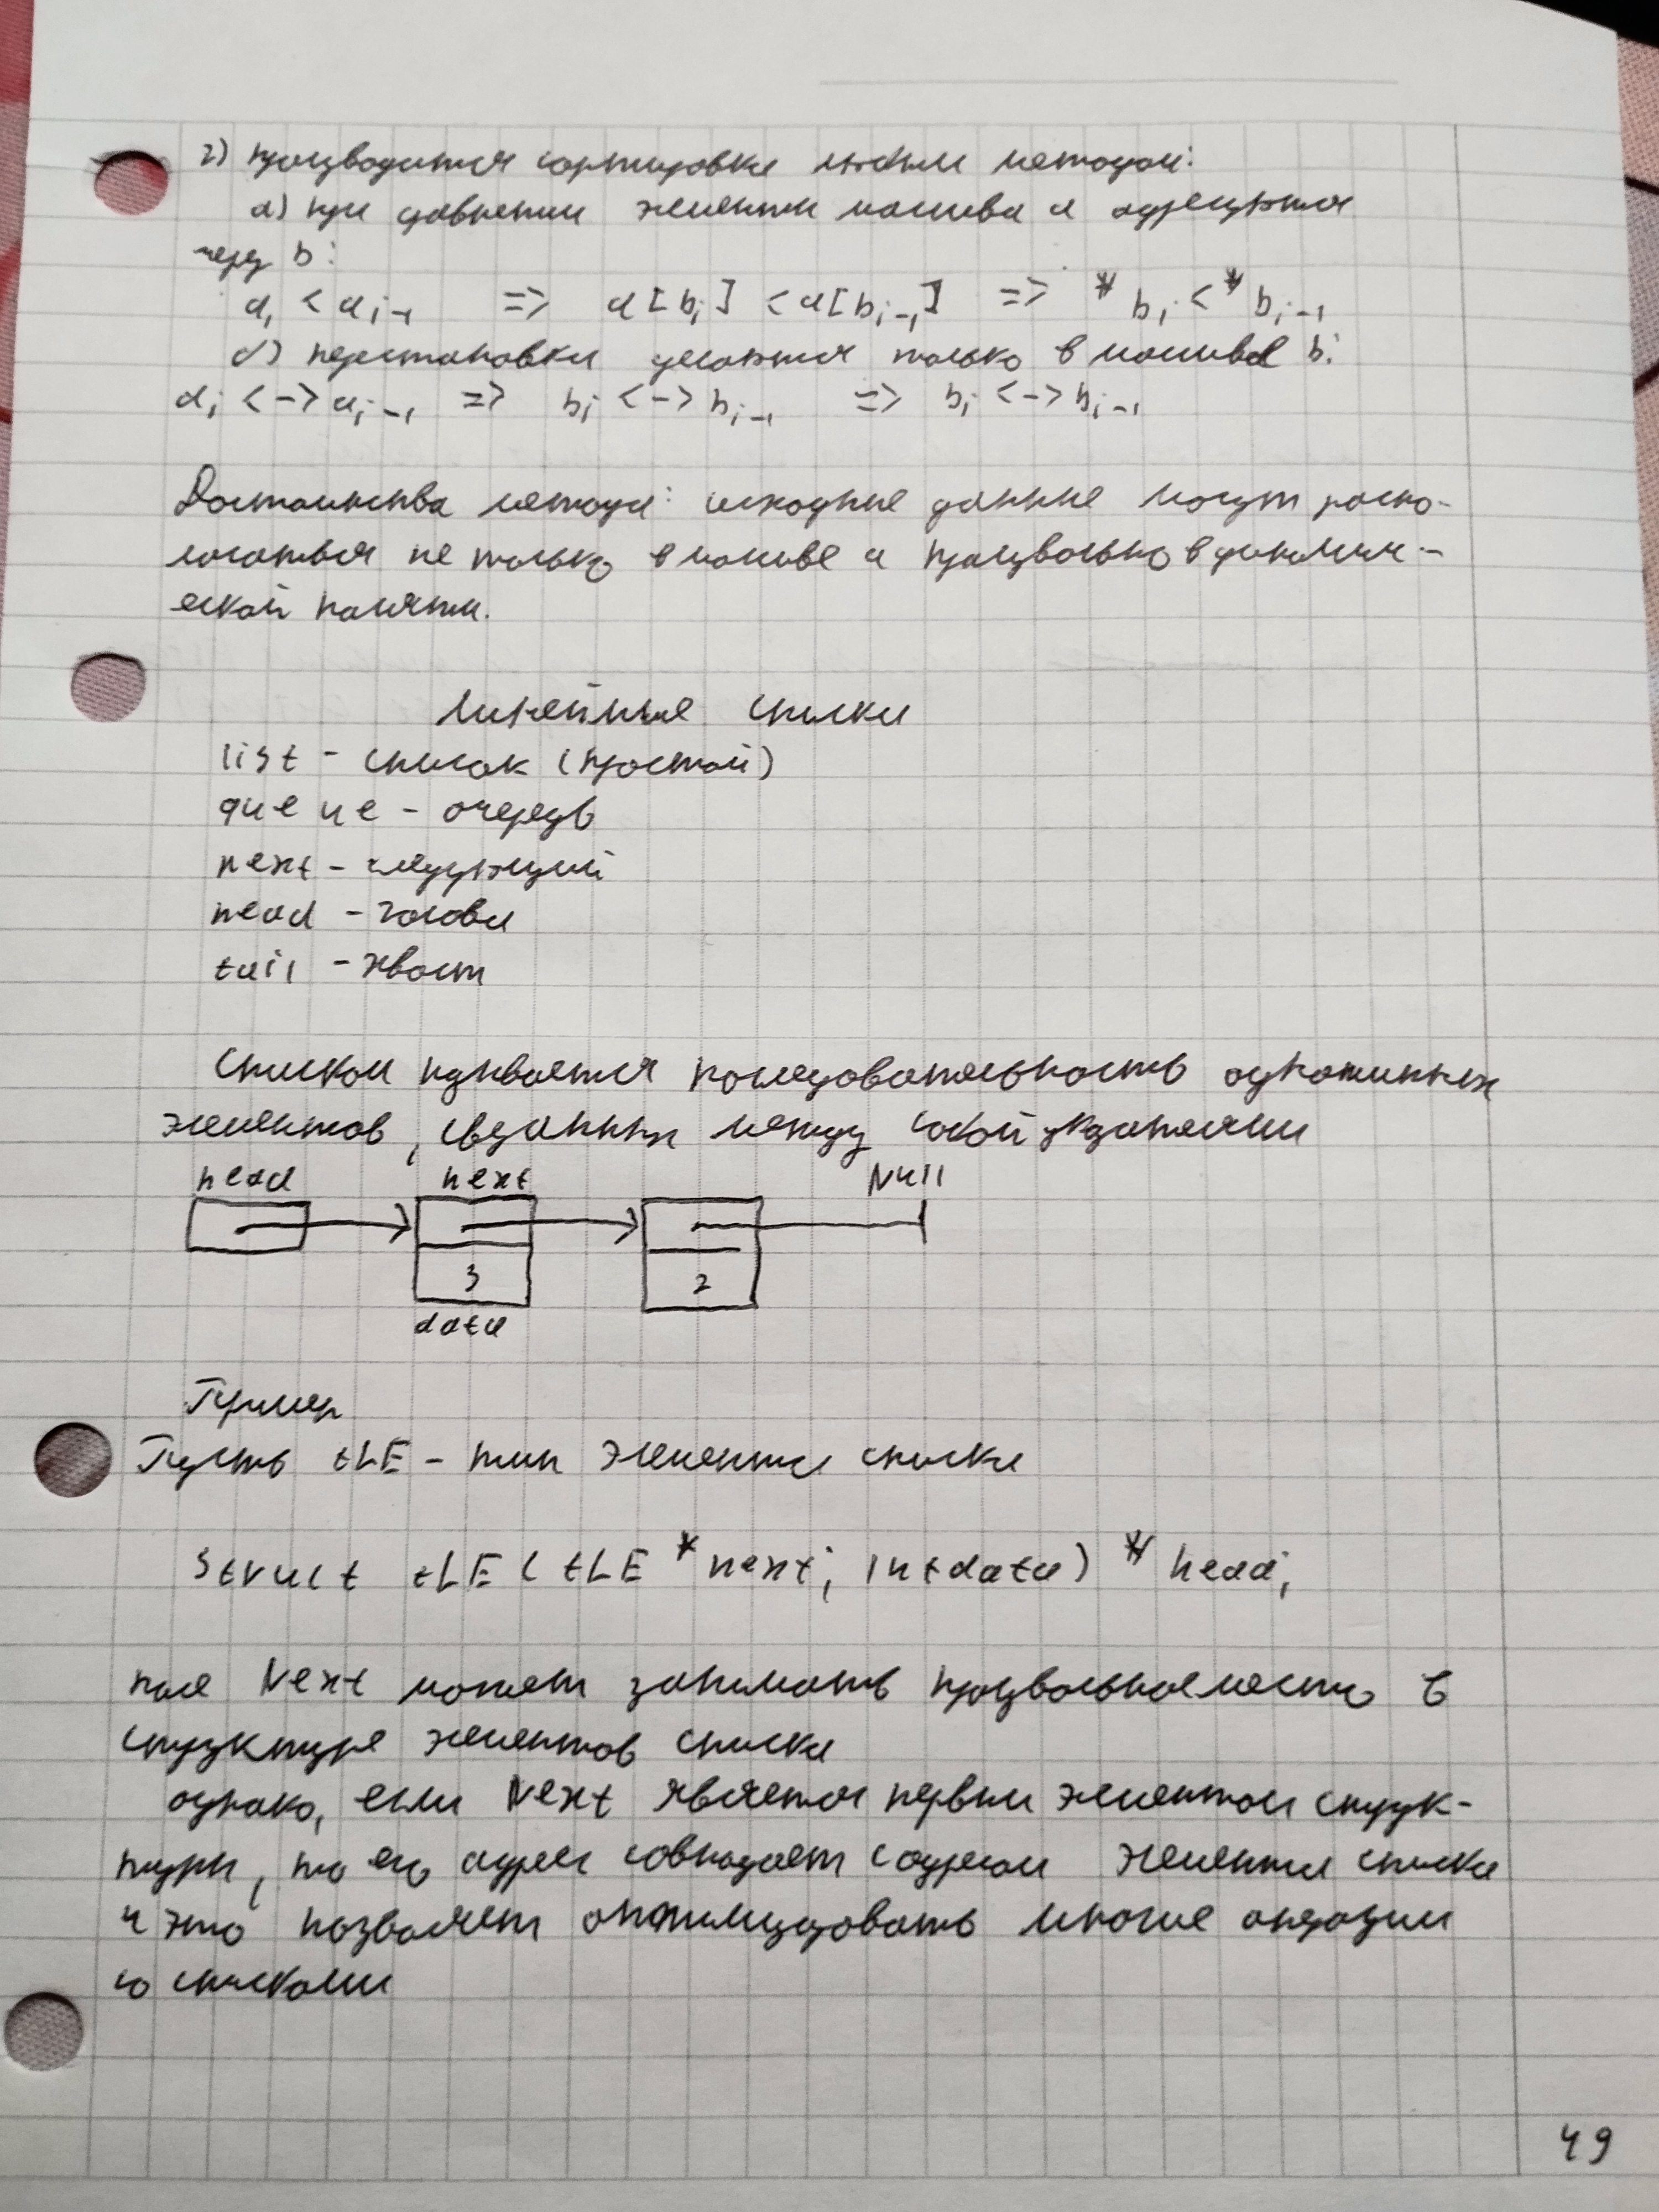 2) производится сортировка любым методом:
а) при сравнении элементы массива а адресуются
через b:
a_i < a_i-1 => a[b_i] < a[b_i-1] => *b_i < *b_i-1
б) перестановки делаются только в массиве b:
a_i <-> a_i-1 => b_i <-> b_i-1 => b_i <-> b_i-1
Достоинства метода: исходные данные могут распо-
логаться не только в массиве а произвольно в динамич-
еской памяти.
Линейные списки
list - список (простой)
queue - очередь
next - следующий
head - голова
tail - хвост
Списком называется последовательность однотипных
элементов, связанных между собой указателями
head next Null
3 2
data
Пример
Пусть tLE - тип элемента списка
struct tLE ( tLE *next; int data) * head;
поле Next может занимать произвольное место в
структуре элементов списка
однако, если Next является первым элементом струк-
туры, то его адрес совпадает с адресом элемента списка
и это позволяет оптимизировать многие операции
со списками
49